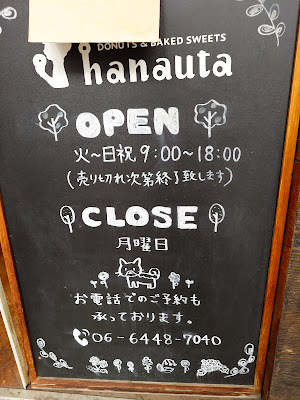 DONUTS & BAKED SWEETS
hanauta
OPEN
火～日祝 9:00～18:00
(売り切れ次第終了致します)
CLOSE
月曜日
お電話でのご予約も
承っております。
06-6448-7040